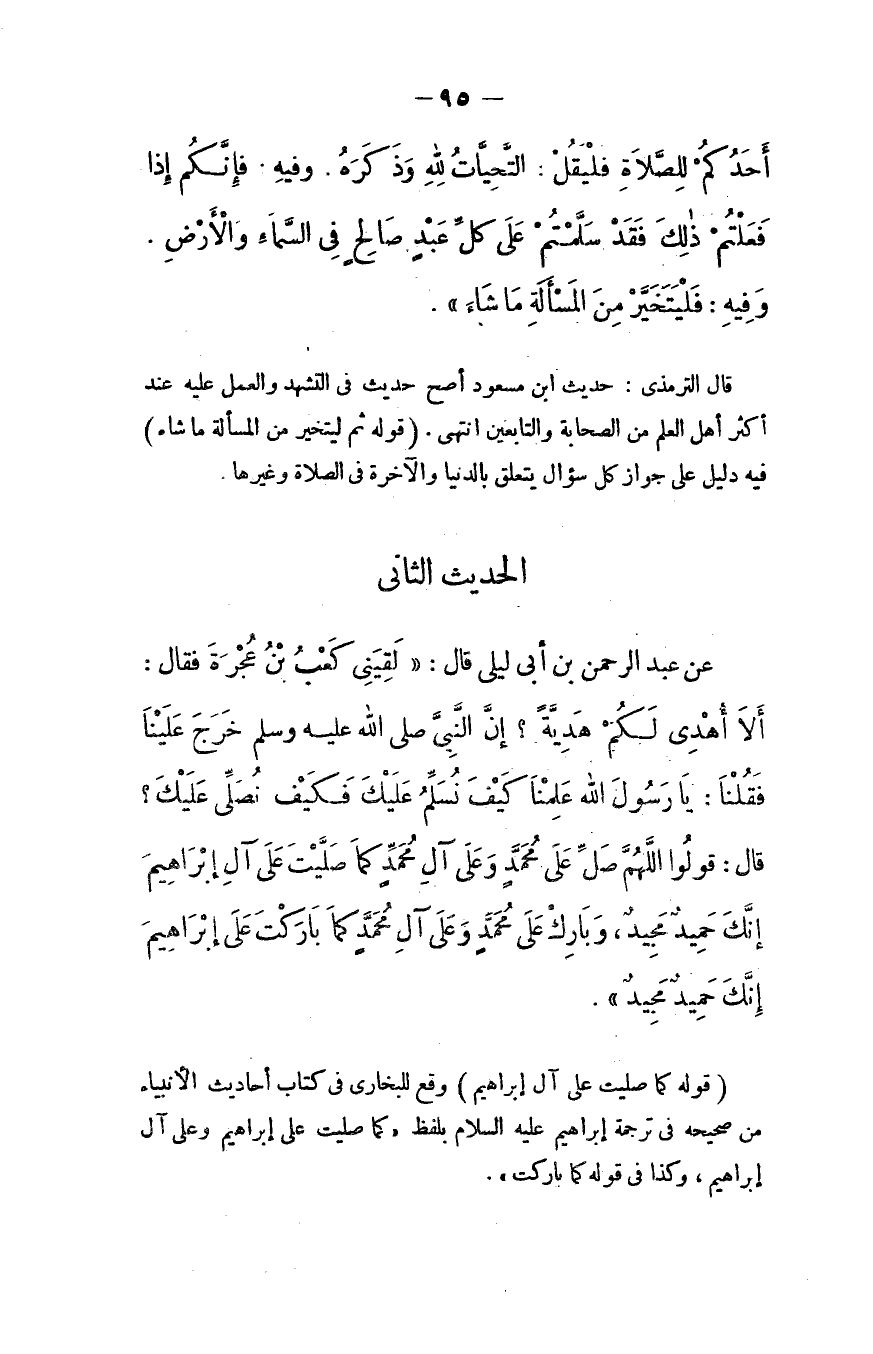 — ٩٥ —
أَحَدُكُمْ لِلصَّلَاةِ فَلْيَقُلْ : التَّحِيَّاتُ لِلهِ وَذَكَرَهُ . وفيهِ · فإِنَّكُم إِذا
فَعَلْتُمْ ذٰلِكَ فَقَدْ سَلَّمْتُمْ عَلَى كلِّ عَبْدٍ صَالِحٍ فِى السَّمَاءِ وَالْأَرْضِ .
وَفِيهِ : فَلْيَتَخَيَّرْ مِنَ الْمَسْأَلَةِ مَا شَاءَ » .
قال الترمذى : حديث ابن مسعود أصح حديث فى التشهد والعمل عليه عند
أكثر أهل العلم من الصحابة والتابعين انتهى . ( قوله ثم ليتخير من المسألة ما شاء )
فيه دليل على جواز كل سؤال يتعلق بالدنيا والآخرة فى الصلاة وغيرها .
الحديث الثانى
عن عبد الرحمن بن أبى ليلى قال : « لَقِيَنِى كَعْبُ بْنُ عُجْرَةَ فقال :
أَلَا أُهْدِى لَكُمْ هَدِيَّةً ؟ إِنَّ النَّبِىَّ صلى الله عليه وسلم خَرَجَ عَلَيْنَا
فَقُلْنَا : يَا رَسُولَ الله عَلِمْنَا كَيْفَ نُسَلِّمُ عَلَيْكَ فَكَيْفَ نُصَلِّى عَلَيْكَ ؟
قال : قولُوا اللَّهُمَّ صَلِّ عَلَى مُحَمَّدٍ وَعَلَى آلِ مُحَمَّدٍ كَمَا صَلَّيْتَ عَلَى آلِ إِبْرَاهِيمَ
إِنَّكَ حَمِيدٌ مَجِيدٌ ، وَبَارِكْ عَلَى مُحَمَّدٍ وَعَلَى آلِ مُحَمَّدٍ كَمَا بَارَكْتَ عَلَى إِبْرَاهِيمَ
إِنَّكَ حَمِيدٌ مَجِيدٌ » .
( قوله كما صليت على آل إبراهيم ) وقع للبخارى فى كتاب أحاديث الأنبياء
من صحيحه فى ترجمة إبراهيم عليه السلام بلفظ «كما صليت على إبراهيم وعلى آل
إبراهيم ، وكذا فى قوله كما باركت » .